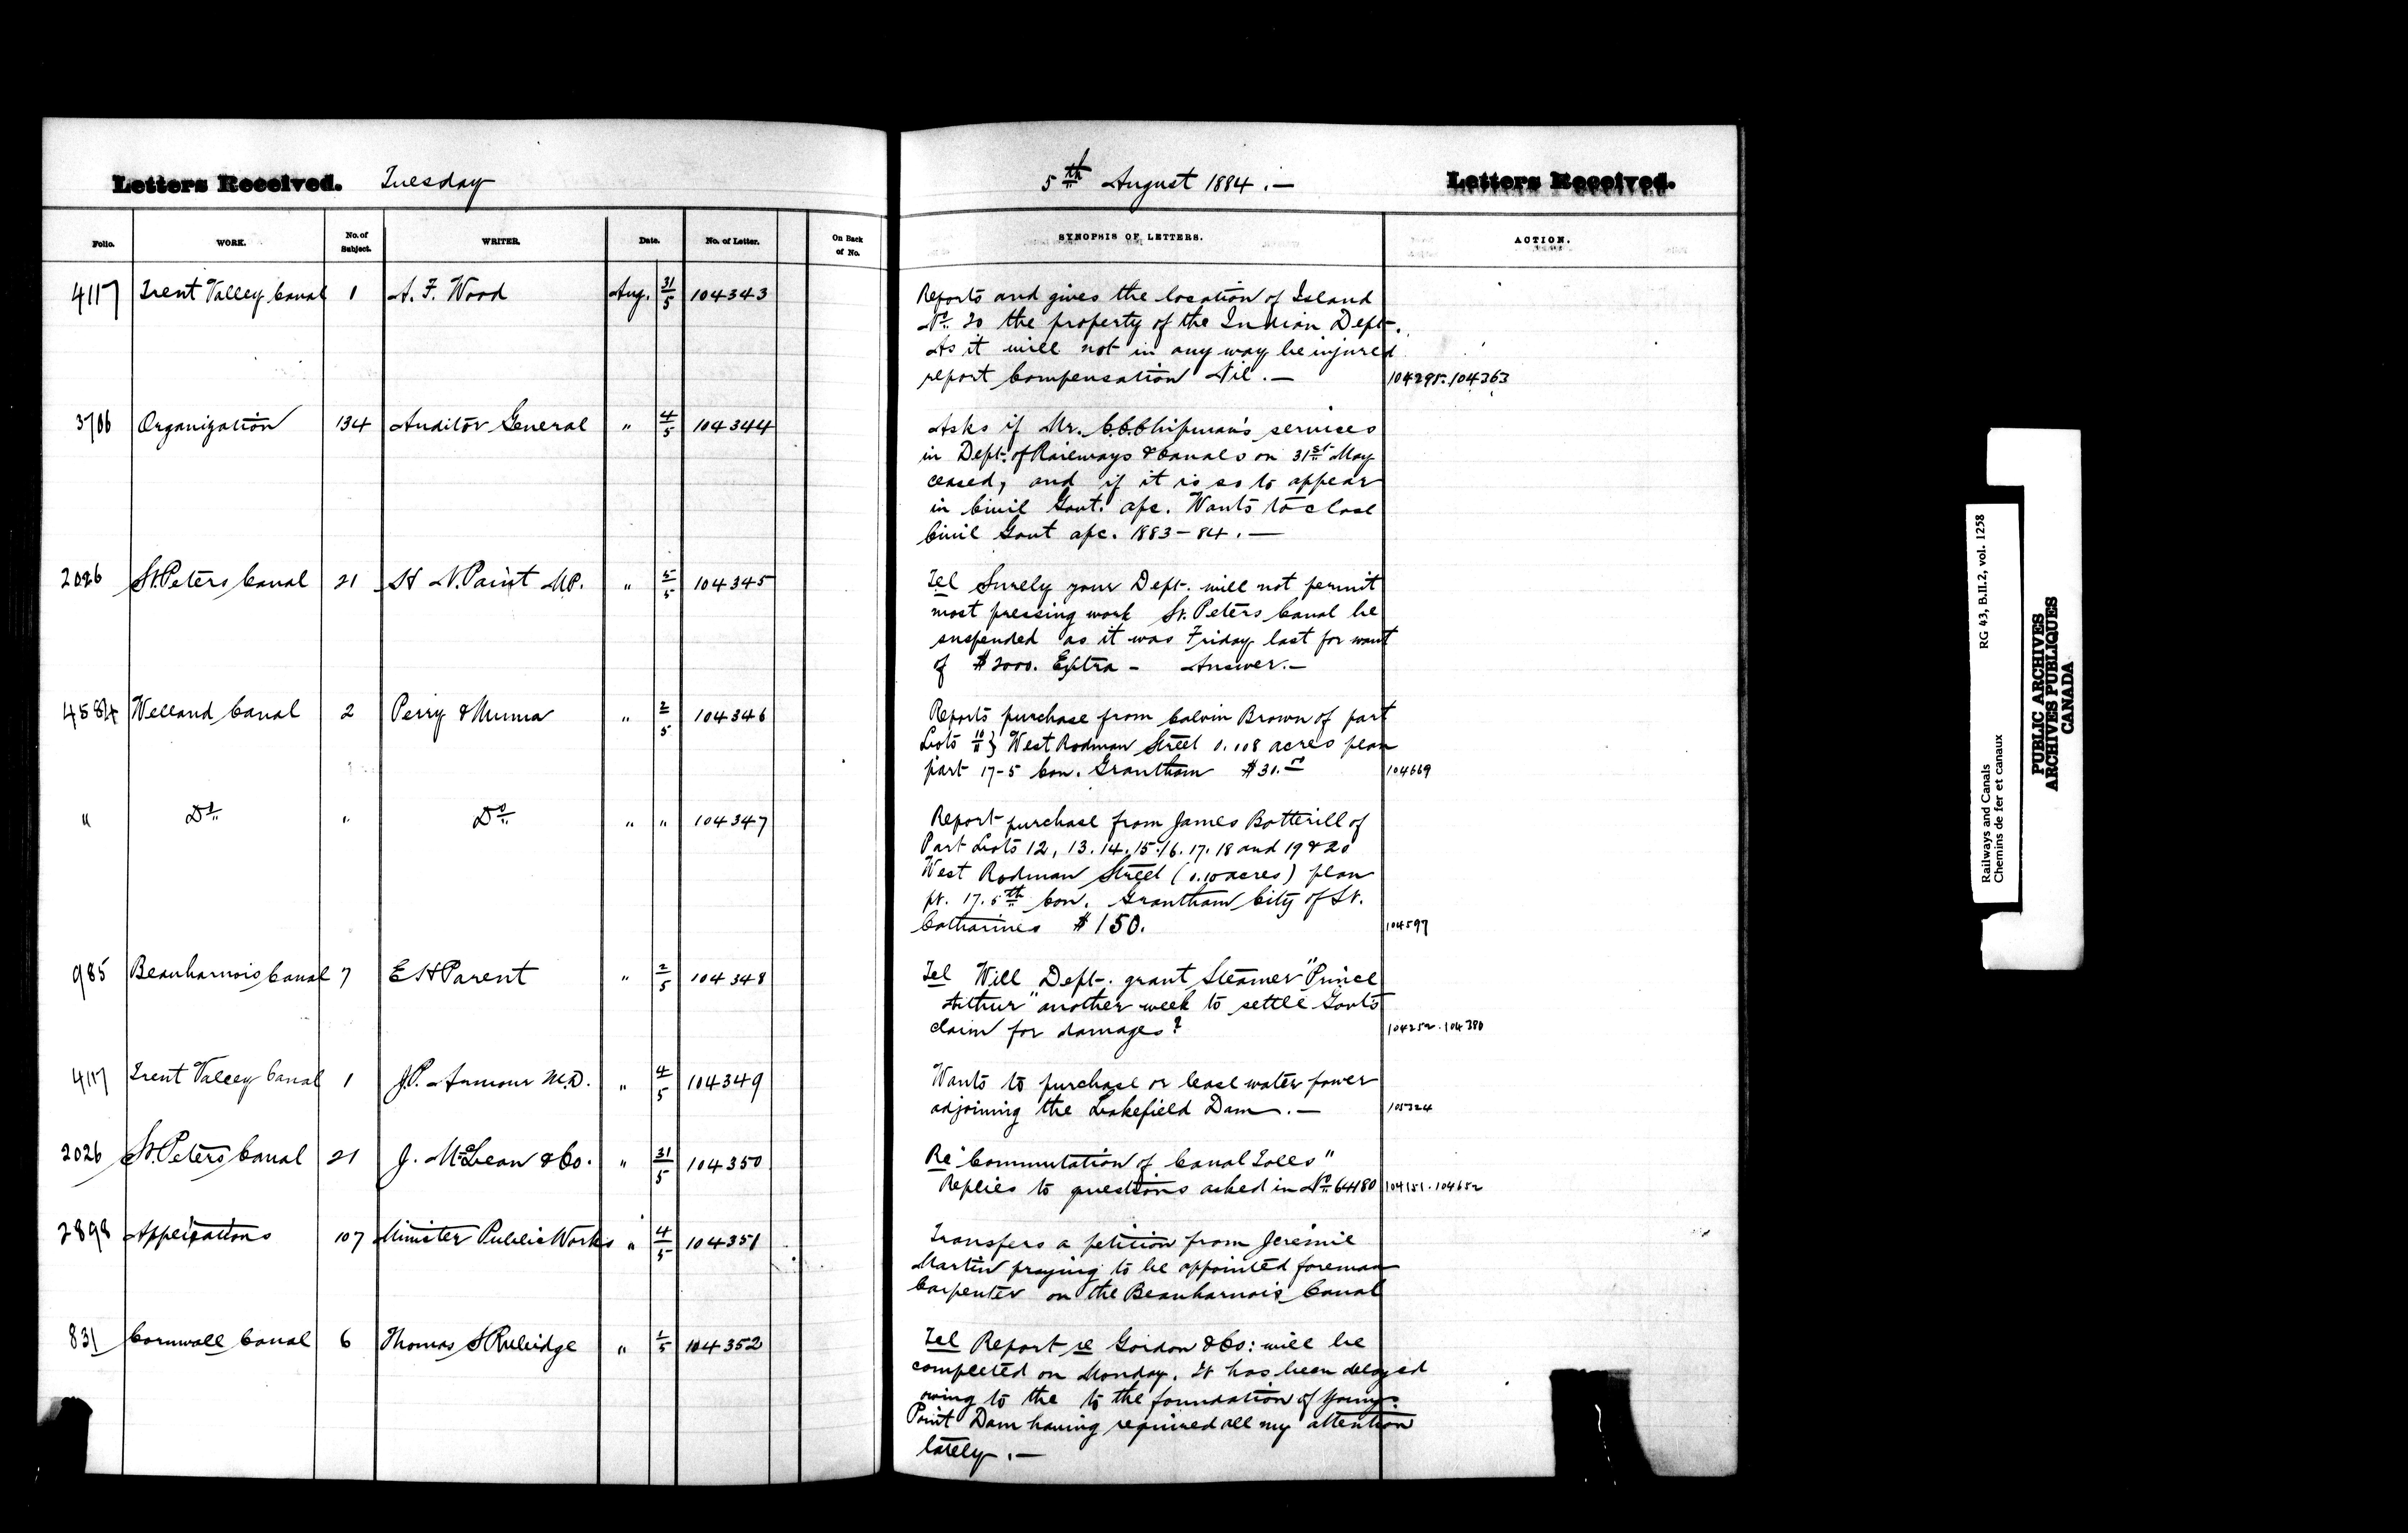 Letters Received. Tuesday
5th August 1884.—
Letters Received.
Folio. WORK. No. of Subject. WRITER. Date. No. of Letter. On Back of No. SYNOPSIS OF LETTERS. ACTION.
4117 Trent Valley Canal 1 A. F. Wood Aug. 31/5 104343
Reports and gives the location of Island
No. 20 the property of the Indian Dept.
As it will not in any way be injured
report Compensation Nil.— 104295.104363
3706 Organization 134 Auditor General " 4/5 104344
Asks if Mr. C.C.Chipman's services
in Dept. of Railways & Canals on 31st May
ceased, and if it is so to appear
in Civil Govt. a/c. Wants to close
Civil Govt a/c. 1883-84.—
2026 St. Peters Canal 21 H N. Paint MP. " 5/5 104345
Tel Surely your Dept. will not permit
most pressing work St. Peters Canal be
suspended as it was Friday last for want
of $2000. Extra - Answer.—
4584 Welland Canal 2 Perry & Munro " 2/5 104346
Reports purchase from Calvin Brown of part
Lots 10/11} West Rodman Street 0.108 acres plan
part 17-5 Con. Grantham $30. 104669
" Do " Do " " 104347
Report purchase from James Botterill of
Part Lots 12, 13. 14. 15. 16. 17. 18 and 19 & 20
West Rodman Street (0.10 acres) plan
pt. 17. 5th Con. Grantham City of St.
Catharines $150. 104597
985 Beauharnois Canal 7 E H Parent " 2/5 104348
Tel Will Dept. grant Steamer "Prince
Arthur" another week to settle Govt's
claim for damages? 104252.104380
4117 Trent Valley Canal 1 J.P. Armour M.D. " 4/5 104349
Wants to purchase or lease water power
adjoining the Lakefield Dam.— 105324
2026 St. Peters Canal 21 J. McLean & Co. " 31/5 104350
Re "Commutation of Canal Tolls"
Replies to questions asked in No 64180 104151.104652
2898 Applications 107 Minister Public Works " 4/5 104351
Transfers a petition from Jeremie
Martin praying to be appointed foreman
Carpenter on the Beauharnois Canal
831 Cornwall Canal 6 Thomas S Rubidge " 1/5 104352
Tel Report re Gordon & Co: will be
completed on Monday. It has been delayed
owing to the to the foundation of Youngs
Point Dam having required all my attention
lately.—
Railways and Canals RG 43, B.II.2, vol. 1258
Chemins de fer et canaux
PUBLIC ARCHIVES
ARCHIVES PUBLIQUES
CANADA